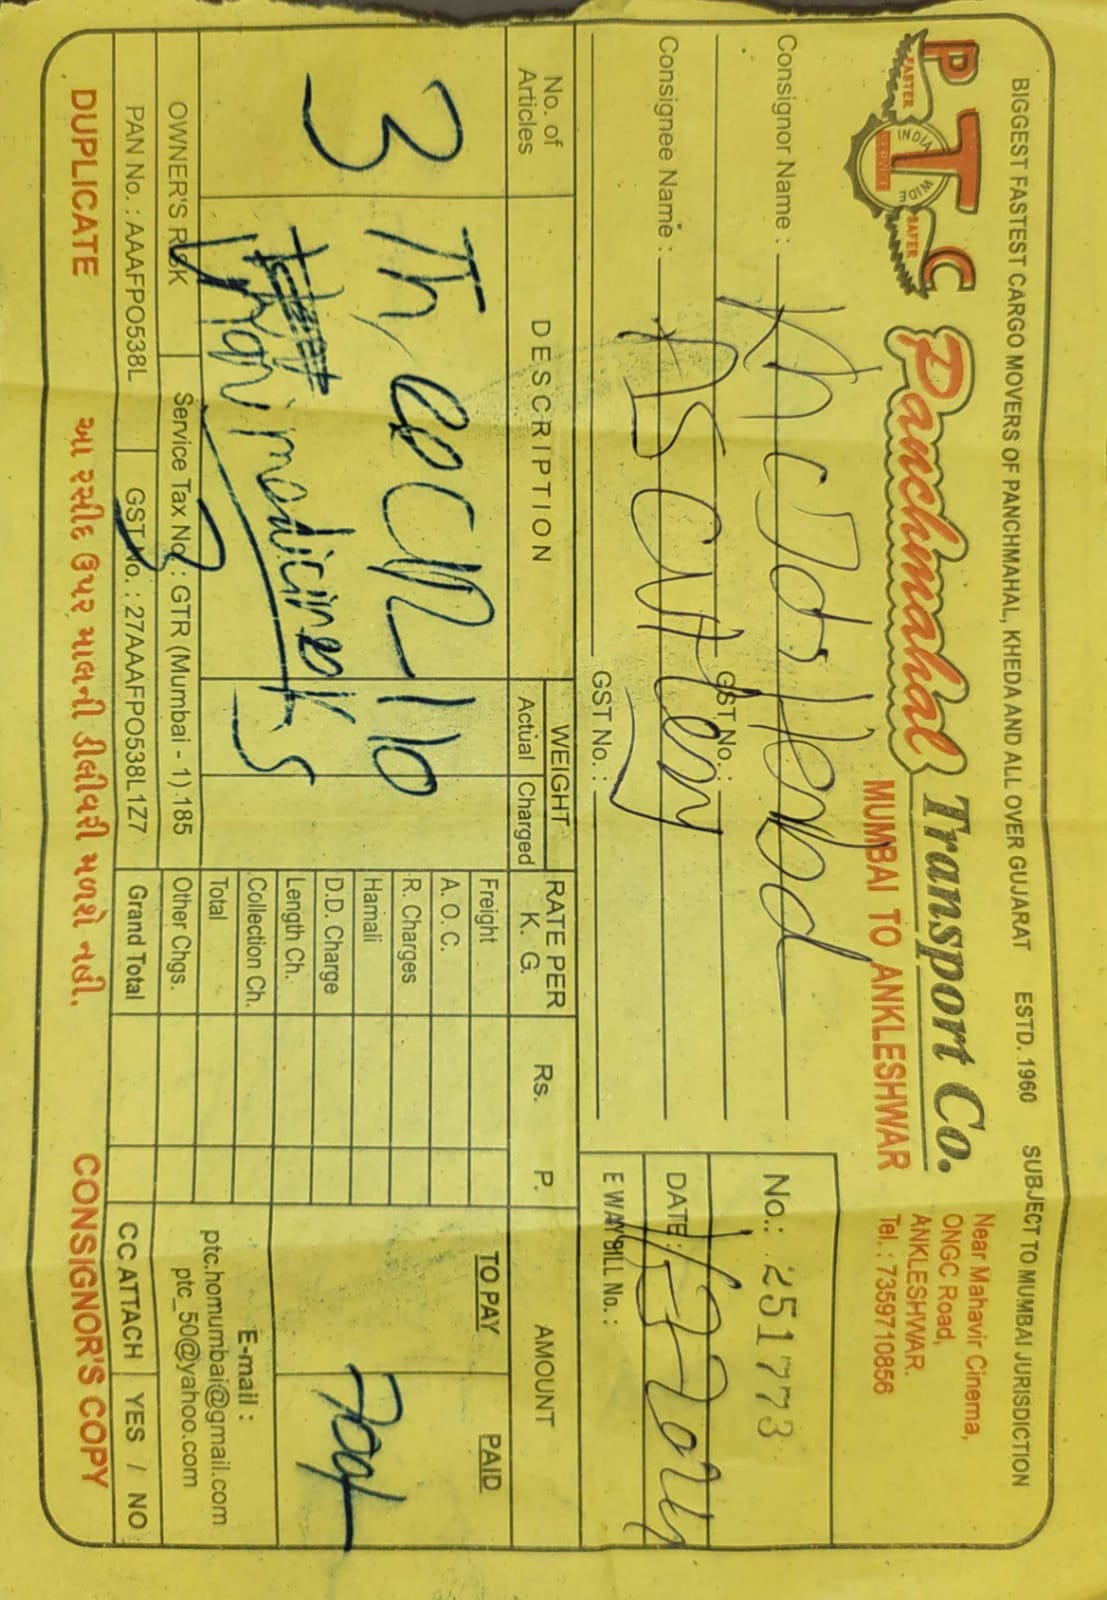 BIGGEST FASTEST CARGO MOVERS OF PANCHMAHAL, KHEDA AND ALL OVER GUJARAT ESTD. 1960 SUBJECT TO MUMBAI JURISDICTION
PTC
FASTER INDIA WIDE SERVICE SAFER
Panchmahal Transport Co.
MUMBAI TO ANKLESHWAR
Near Mahavir Cinema,
ONGC Road,
ANKLESHWAR.
Tel. : 7359710856
Consignor Name :
GST No. :
Consignee Name :
GST No. :
No.: 251773
DATE:
E WAY BILL No. :
No. of Articles
DESCRIPTION
WEIGHT
Actual Charged
RATE PER K. G.
Rs. P.
AMOUNT
TO PAY PAID
3
Freight
A. O. C.
R. Charges
Hamali
D.D. Charge
Length Ch.
Collection Ch.
Total
Other Chgs.
Grand Total
E-mail :
ptc.homumbai@gmail.com
ptc_50@yahoo.com
OWNER'S RISK Service Tax No. : GTR (Mumbai - 1) 185
PAN No. : AAAFPO538L GST No. : 27AAAFPO538L1Z7
CC ATTACH YES / NO
DUPLICATE આ રસીદ ઉપર માલની ડીલીવરી મળશે નહી. CONSIGNOR'S COPY